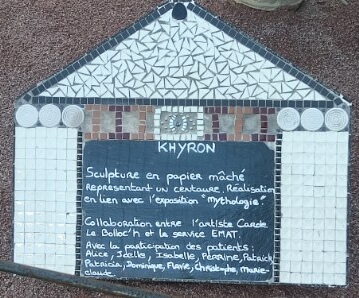 KHYRON
Sculpture en papier mâché
représentant un centaure. Réalisation
en lien avec l'exposition "Mythologie".
Collaboration entre l'artiste Carole
Le Belloc'h et le service EMAT.
Avec la participation des patients:
Alice, Joëlle, Isabelle, Perrine, Patrick,
Patricia, Dominique, Flavie, Christophe, Marie-
Claude.